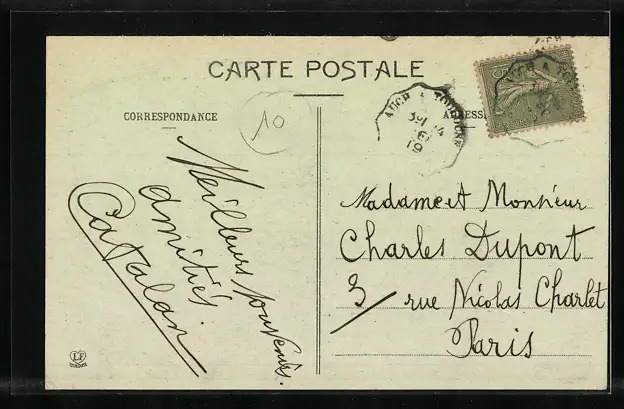 CARTE POSTALE
CORRESPONDANCE
10
Meilleurs souvenirs.
amitiés.
Catalan
AUCH A TOULOUSE
19
Madame et Monsieur
Charles Dupont
3/ rue Nicolas Charlet
Paris
LF